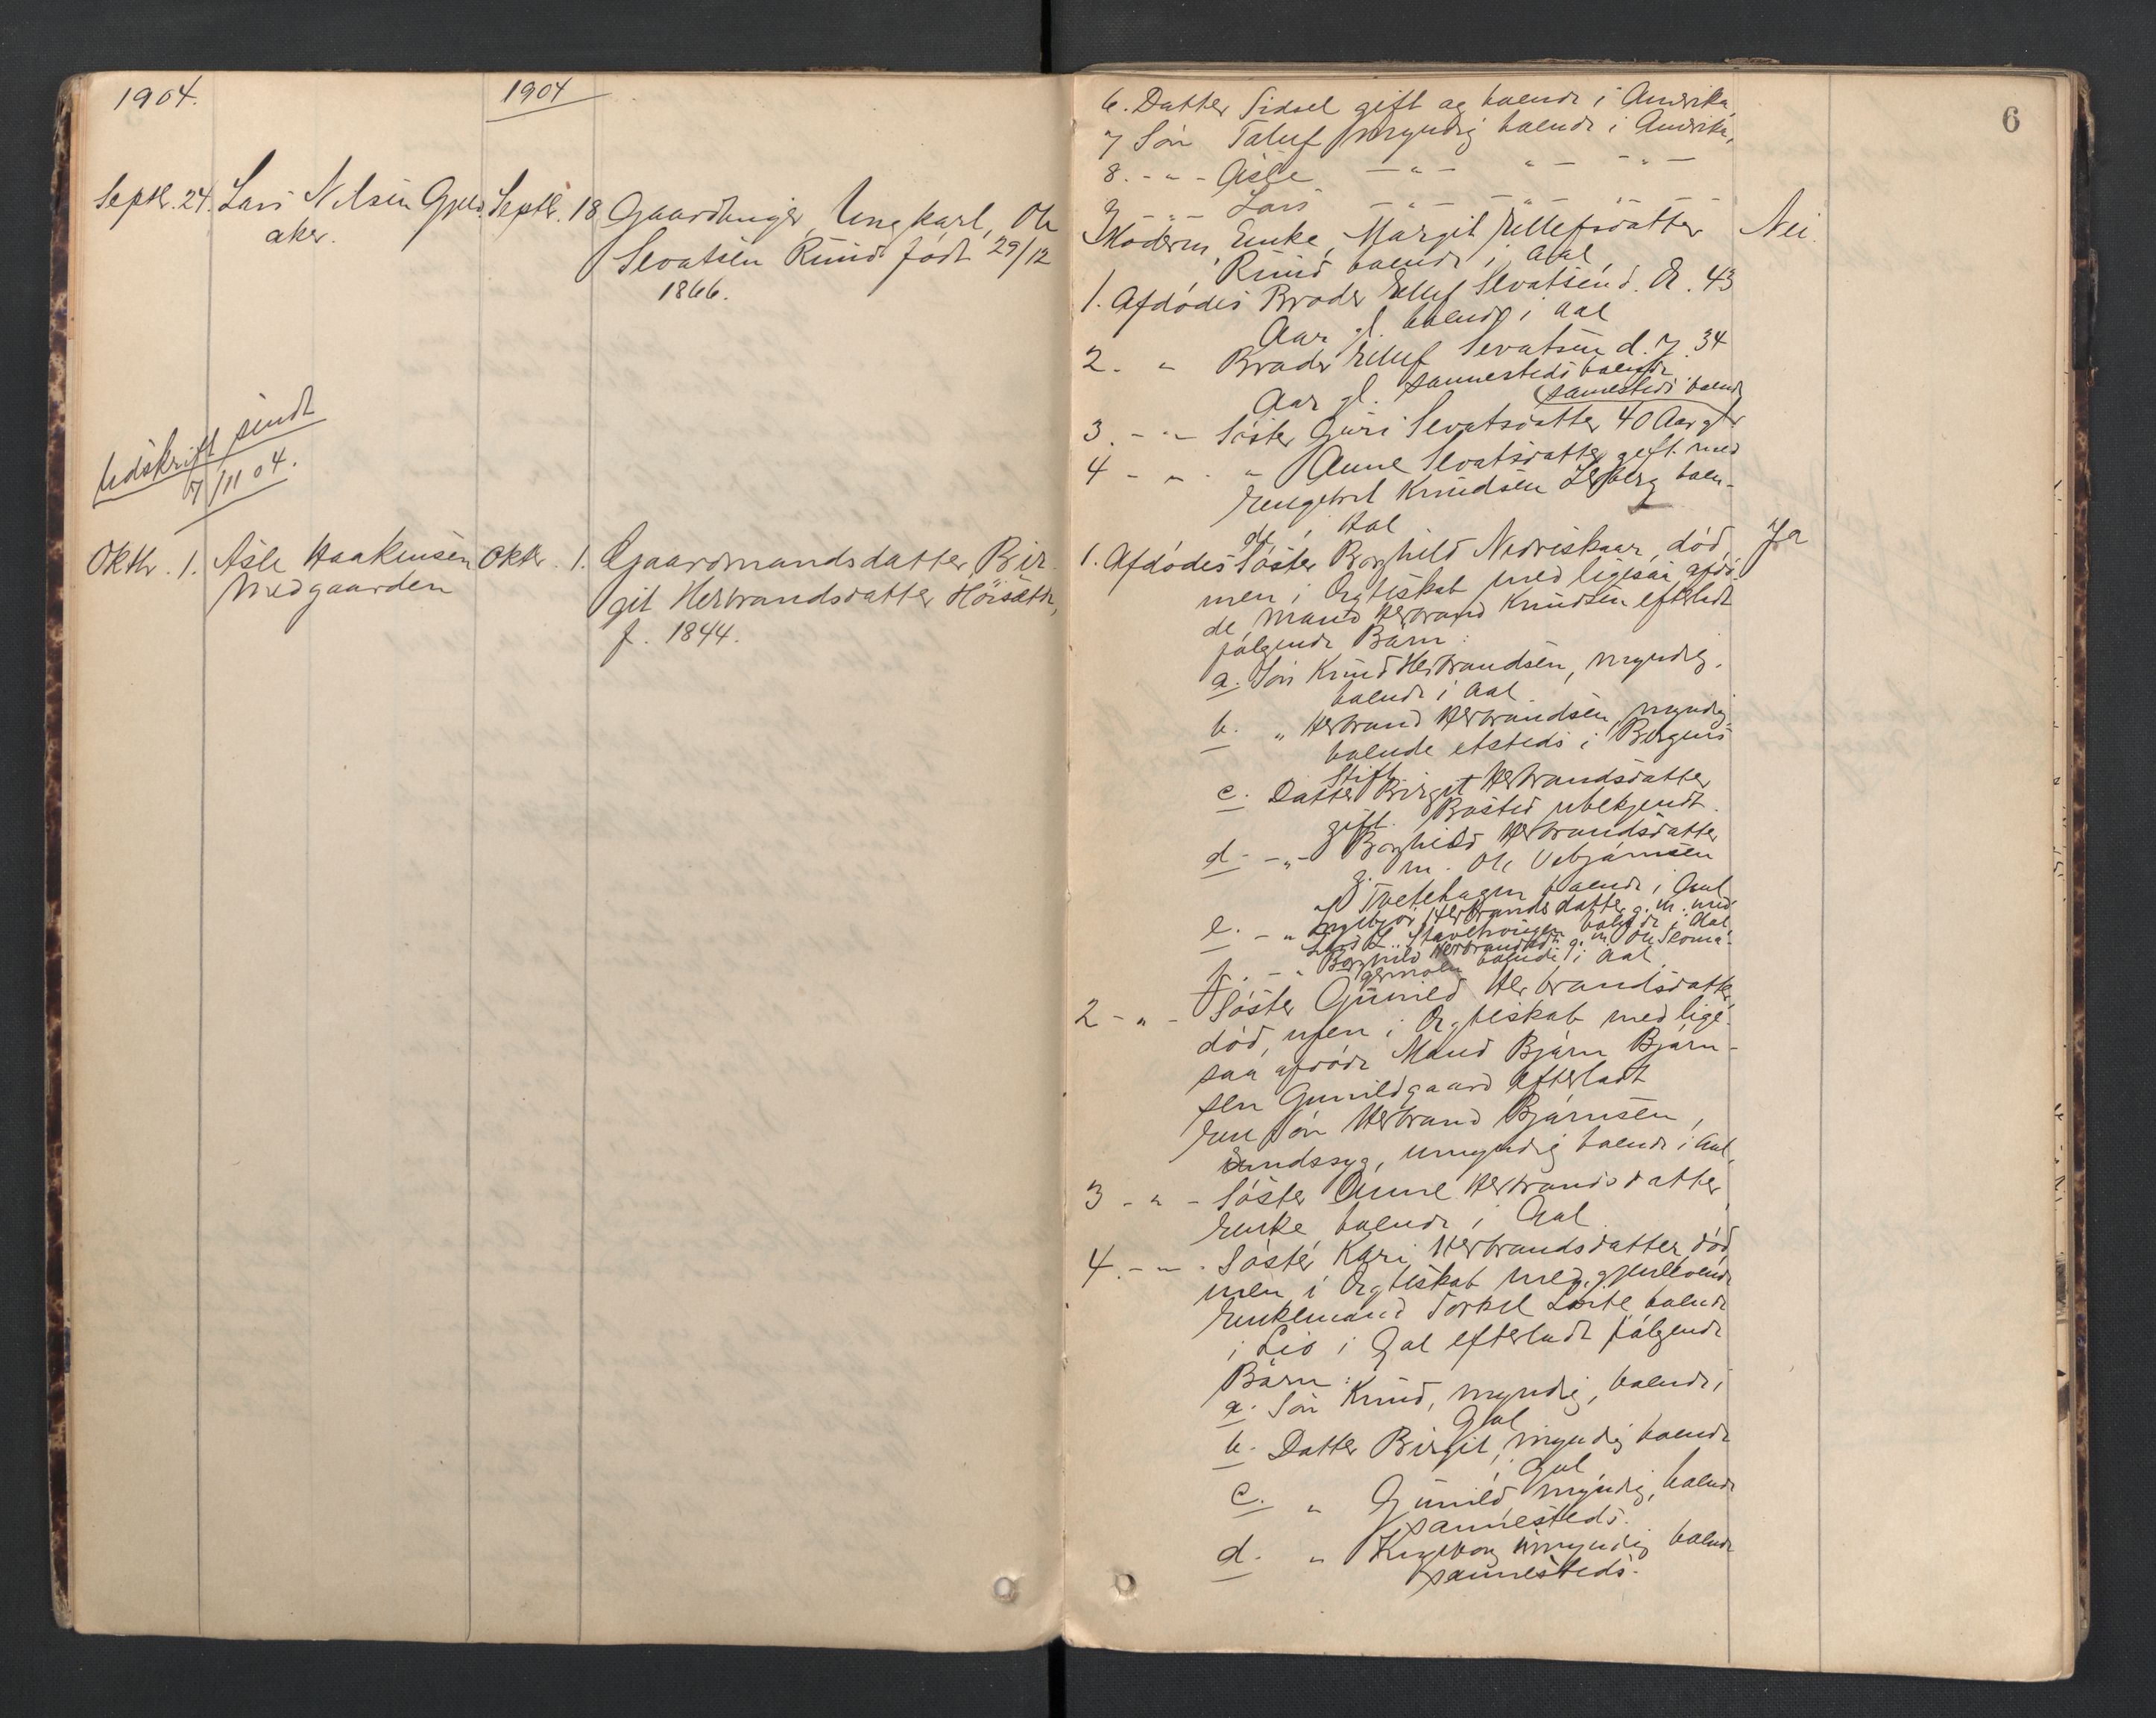 1904.
1904
Septbr. 24. Lars Nilsen Gjeld
aker.
Septbr. 18. Gaardbruger, Ungkarl, Ole
Sevatsen Ruud født 29/12
1866.
Udskrift sendt
7/11 04.
Oktbr. 1. Asle Haakensen
Medgaarden
Oktbr. 1. Gaardmandsdatter Bir-
git Herbrandsdatter Höisæth,
f. 1844.
6
6. Datter Sidsel gift og boende i Amerika,
7 Sön Toluf myndig boende i Amerika,
8. - " - Asle - " - " - - " -
9 - " - Lars - " - - " - " -
Moderen, Enke, Margit Ellefsdatter
Ruud boende i Aal,
Nei.
1. Afdödes Broder Elluf Sevatsen d. Æ. 43
Aar gl. boende i Aal
2. " Broder Elluf Sevatsen d. y. 34
Aar gl. sammesteds boende
3. - " - Söster Guri Sevatsdatter 40 Aar gl.
sammesteds boende
4 - " - " Anne Sevatsdatter gift med
Engebret Knudsen boen-
de i Aal
1. Afdödes Söster Borghild Nedreskaar, död,
Ja
men i Ægteskab med ligesaa afdö-
de Mand Herbrand Knudsen efterladt
følgende Børn:
a. Sön Knud Herbrandsen, myndig,
boende i Aal
b. " Herbrand Herbrandsen, myndig,
boende etsteds i Bergens
Stift
c. Datter Birgit Herbrandsdatter
gift. Bosted ubekjendt.
d. - " - Borghild Herbrandsdatter
g. m. Ole Vebjørnsen
Tvetehagen boende i Aal
e. - " Ingebjör Herbrandsdatter g. m. med
Lars L. boende i Aal
f. - " Borghild Herbrandsdtr g. m. Ole
boende i Aal
2 - " - Söster Gunild Herbrandsdatter,
död, men i Ægteskab med lige-
saa afdöde Mand Bjørn Bjørn-
sen Gunildgaard efterladt
een Sön Herbrand Bjørnsen,
sindssyg, umyndig boende i Aal,
3 - " - Söster Anne Herbrandsdatter,
Enke, boende i Aal
4. - " - Söster Kari Herbrandsdatter, död,
men i Ægteskab med gjenlevende
Enkemand Torkel boende
i Lio i Gol efterladt følgende
Børn:
a. Sön Knud, myndig, boende i
Gol
b. Datter Birgit, myndig boende
i Gol
c. " Gunild myndig, boende
sammesteds.
d. " Ingeborg umyndig boende
sammesteds.